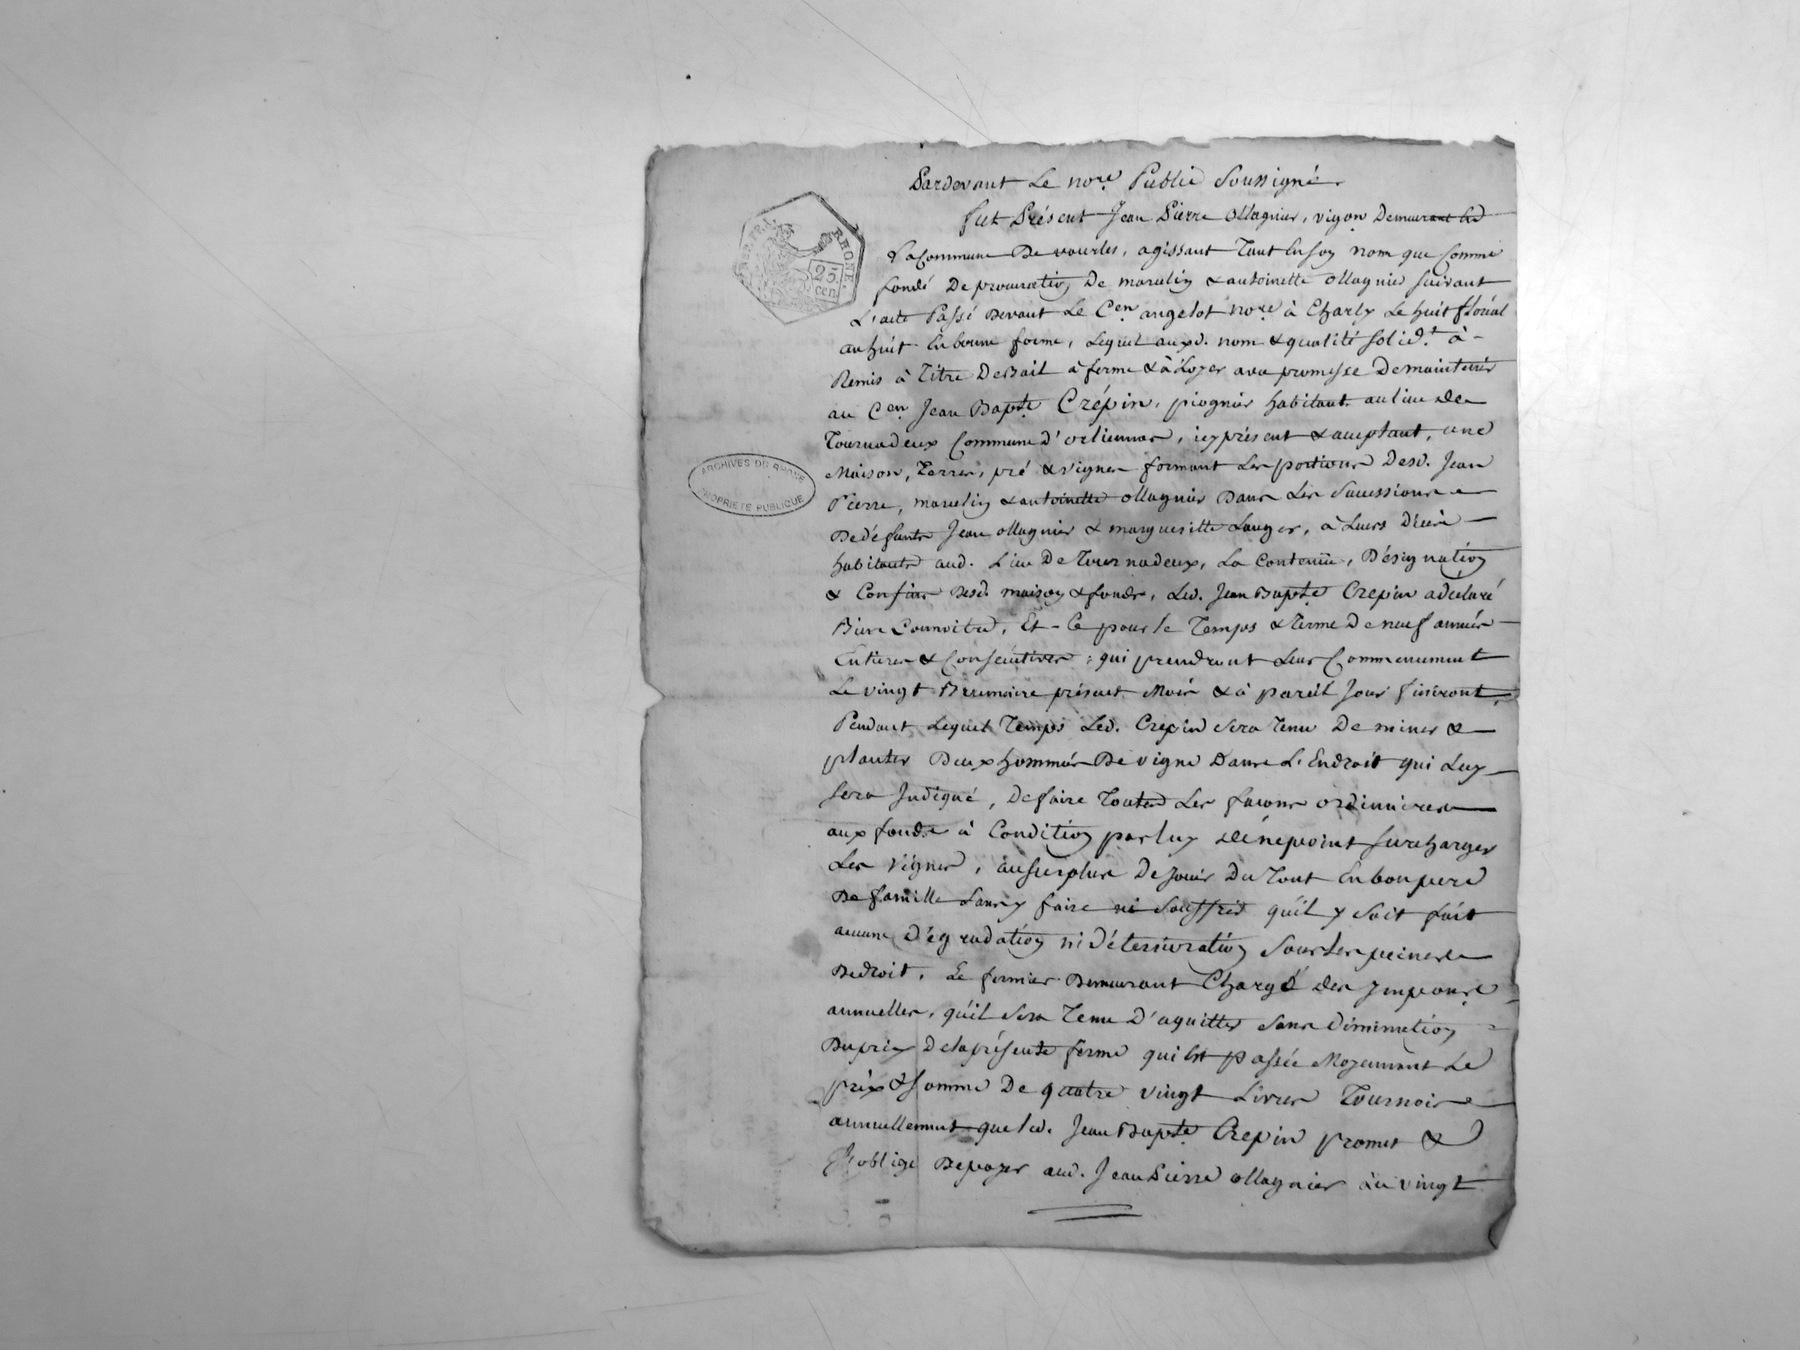 Pardevant Le nore Public Soussigné
fut Présent Jean Pierre ollagnier, vigon Demeurant
La Commune De vourles, agissant Tant En son nom que Comme
fondé De procuration De marcelin & antoinette ollagnier suivant
L'acte Passé Devant Le Cen angelot nore à Charly Le huit floréal
an huit En bonne forme, Lequel auxd. nom & qualité solid.t à
Remis à Titre De Bail à ferme & à Loyer avec promesse De maintenir
au Cen Jean Bapte Crépin, piognier habitant au lieu de
Tournadeux Commune d'orlienas, icy présent & acceptant, une
Maison, Terres, pré & vignes formant Les portions Desd. Jean
Pierre, marcelin & antoinette ollagnier Dans Les Successions
De défunts Jean ollagnier & margueritte Lauger, à Leurs Décès
habitants aud. Lieu De Tournadeux, La Contenüe, Désignation
& Confins Desd. maison & fonds, Led. Jean Bapte Crepin a déclaré
Bien Connoitre, Et Ce pour le Temps & Terme De neuf années
Entieres & Consécutives, qui prendront Leur Commencement
Le vingt Brumaire présent Mois & à pareil Jour finiront,
Pendant Lequel Temps Led. Crepin Sera Tenu De miner &
planter Deux hommées De vigne Dans L'Endroit qui Luy
Sera Indiqué, De faire Toutes Les façons ordinaires
aux fonds à Condition par luy de ne point surcharger
Les vignes, au surplus De Jouir Du Tout En bon pere
De famille Sans y faire ni Souffrir qu'il y Soit fait
aucune Dégradation ni Détérioration Sous Les peines
De droit, Le fermier Demeurant Chargé des Impons
annuelles, qu'il Sera Tenu D'aquitter Sans Diminution
Du prix De la présente ferme qui Est passée Moyennant Le
prix & somme De quatre vingt Livres Tournois
annuellement que led. Jean Bapte Crepin promet &
s'oblige De payer aud. Jean Pierre ollagnier Le vingt
RHONE.
25
cen.
ARCHIVES DU RHONE
PROPRIETE PUBLIQUE